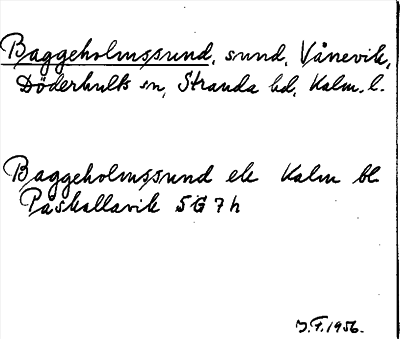 Baggeholmssund, sund, Vånevik,
Döderhults sn, Stranda hd, Kalm. l.
Baggeholmssund ek Kalm bl
Påskallavik 5G7h
J.F. 1956.